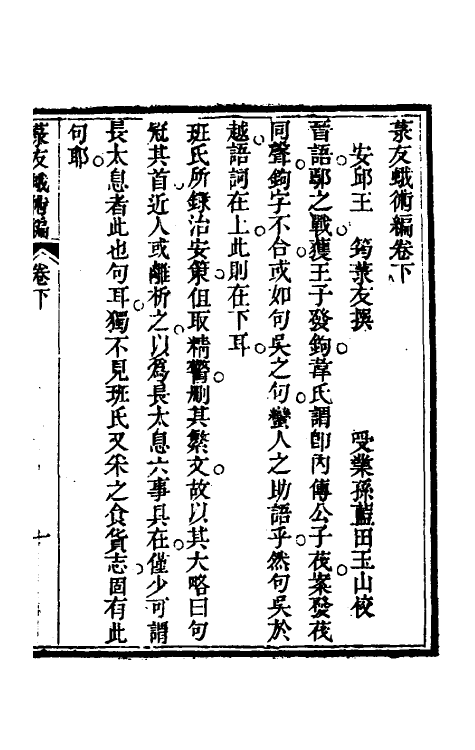 菉友蛾術編卷下
安邱王　筠菉友撰　　受業孫藍田玉山校
晉語鄢之戰獲王子發鉤韋氏謂卽內傳公子茷案發茷
同聲鉤字不合或如句吳之句蠻人之助語乎然句吳於
越語詞在上此則在下耳
班氏所錄治安策但取精警刪其繁文故以其大略曰句
冠其首近人或離析之以爲長太息六事具在僅少可謂
長太息者此也句耳獨不見班氏又采之食貨志固有此
句耶
菉友蛾術編　卷下